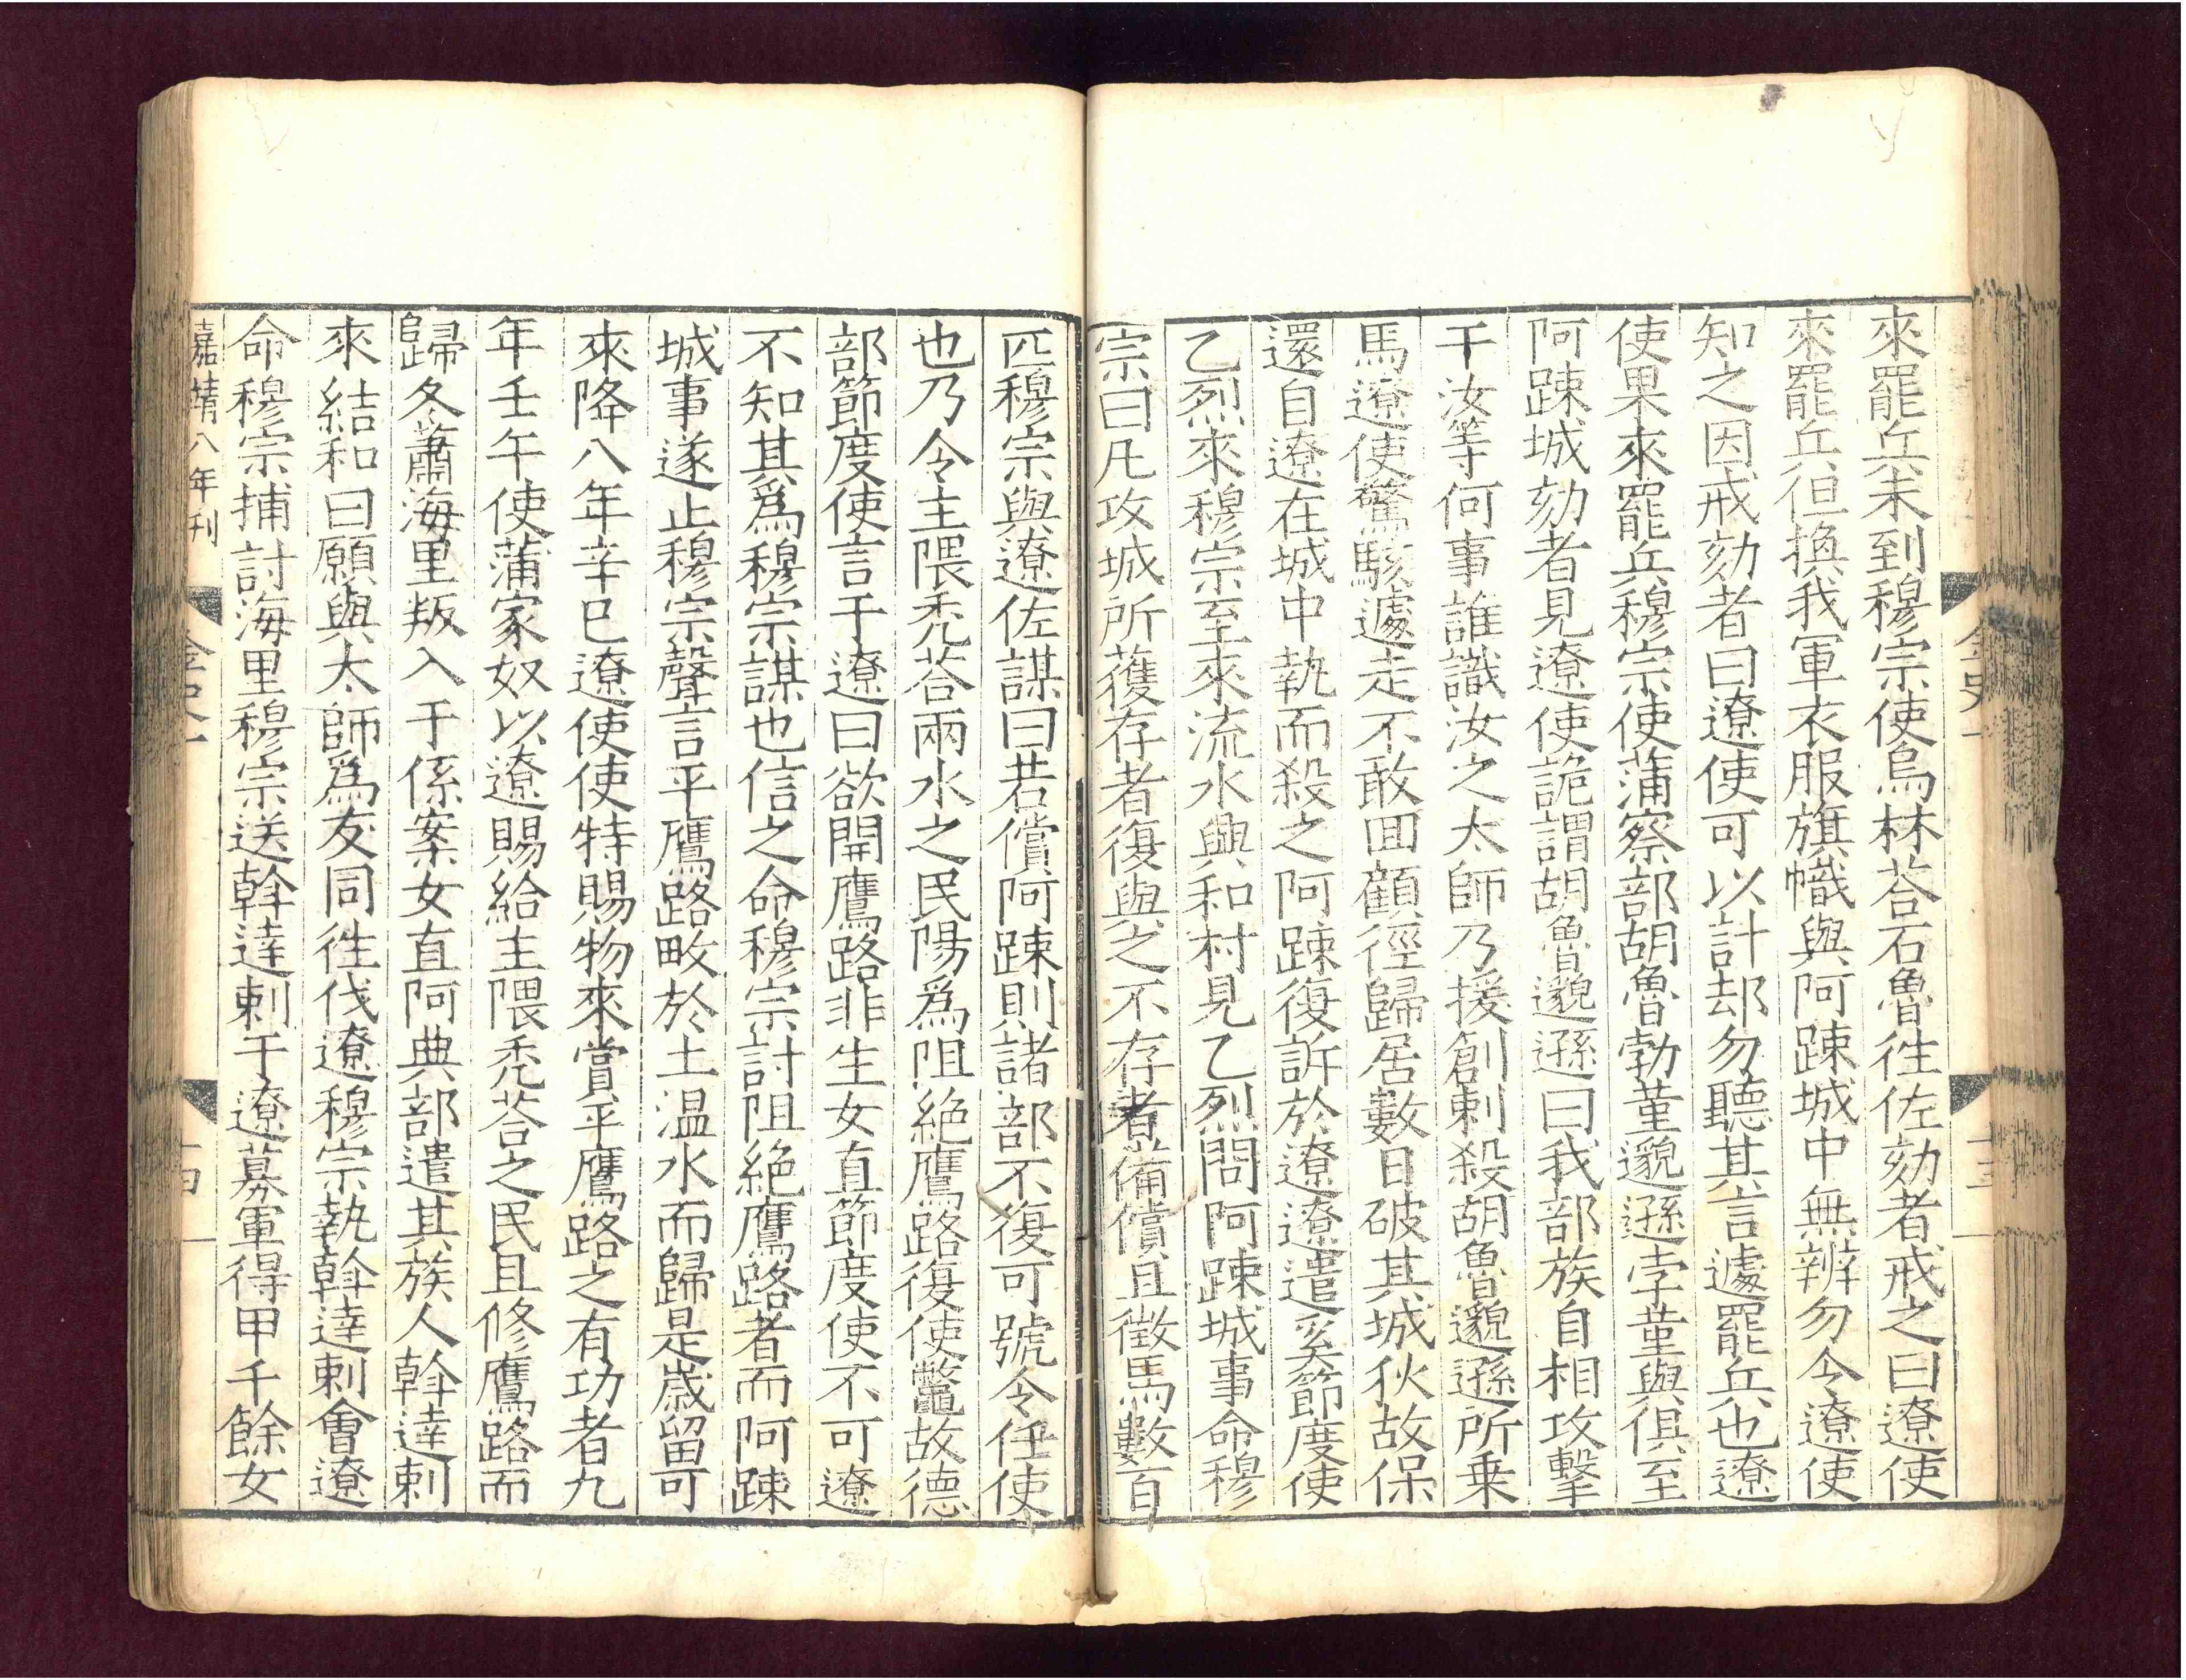 來罷兵未到穆宗使烏林荅石魯徃佐劾者戒之曰遼使
來罷兵但換我軍衣服旗幟與阿踈城中無辨勿令遼使
知之因戒劾者曰遼使可以計却勿聽其言遽罷兵也遼
使果來罷兵穆宗使蒲察部胡魯勃菫邈遜孛菫與俱至
阿踈城劾者見遼使詭謂胡魯邈遜曰我部族自相攻擊
干汝等何事誰識汝之太師乃援創刺殺胡魯邈遜所乗
馬遼使驚駭遽走不敢囬顧徑歸居數日破其城狄故保
還自遼在城中執而殺之阿踈復訴於遼遼遣奚節度使
乙烈來穆宗至來流水興和村見乙烈問阿踈城事命穆
宗曰凡攻城所獲存者復與之不存者備償且徵馬數百
匹穆宗與遼佐謀曰若償阿踈則諸部不復可號令任使
也乃令主隈秃荅兩水之民陽爲阻絶鷹路復使鼈故德
部節度使言于遼曰欲開鷹路非生女直節度使不可遼
不知其爲穆宗謀也信之命穆宗討阻絶鷹路者而阿踈
城事遂止穆宗聲言平鷹路畋於土温水而歸是歳留可
來降八年辛巳遼使使特賜物來賞平鷹路之有功者九
年壬午使蒲家奴以遼賜給主隈秃荅之民且修鷹路而
歸冬蕭海里叛入于係案女直阿典部遣其族人斡達剌
來結和曰願與太師爲友同徃伐遼穆宗執斡達剌會遼
命穆宗捕討海里穆宗送斡達剌于遼募軍得甲千餘女
嘉靖八年刊
金史一
十四
金史一
十三